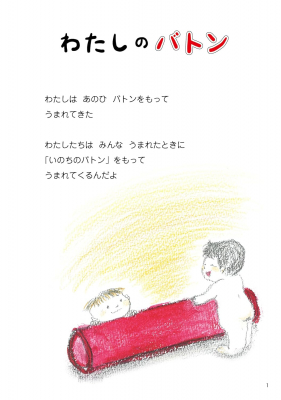 わたしの バトン
わたしは あのひ バトンをもって
うまれてきた
わたしたちは みんな うまれたときに
「いのちのバトン」をもって
うまれてくるんだよ
1